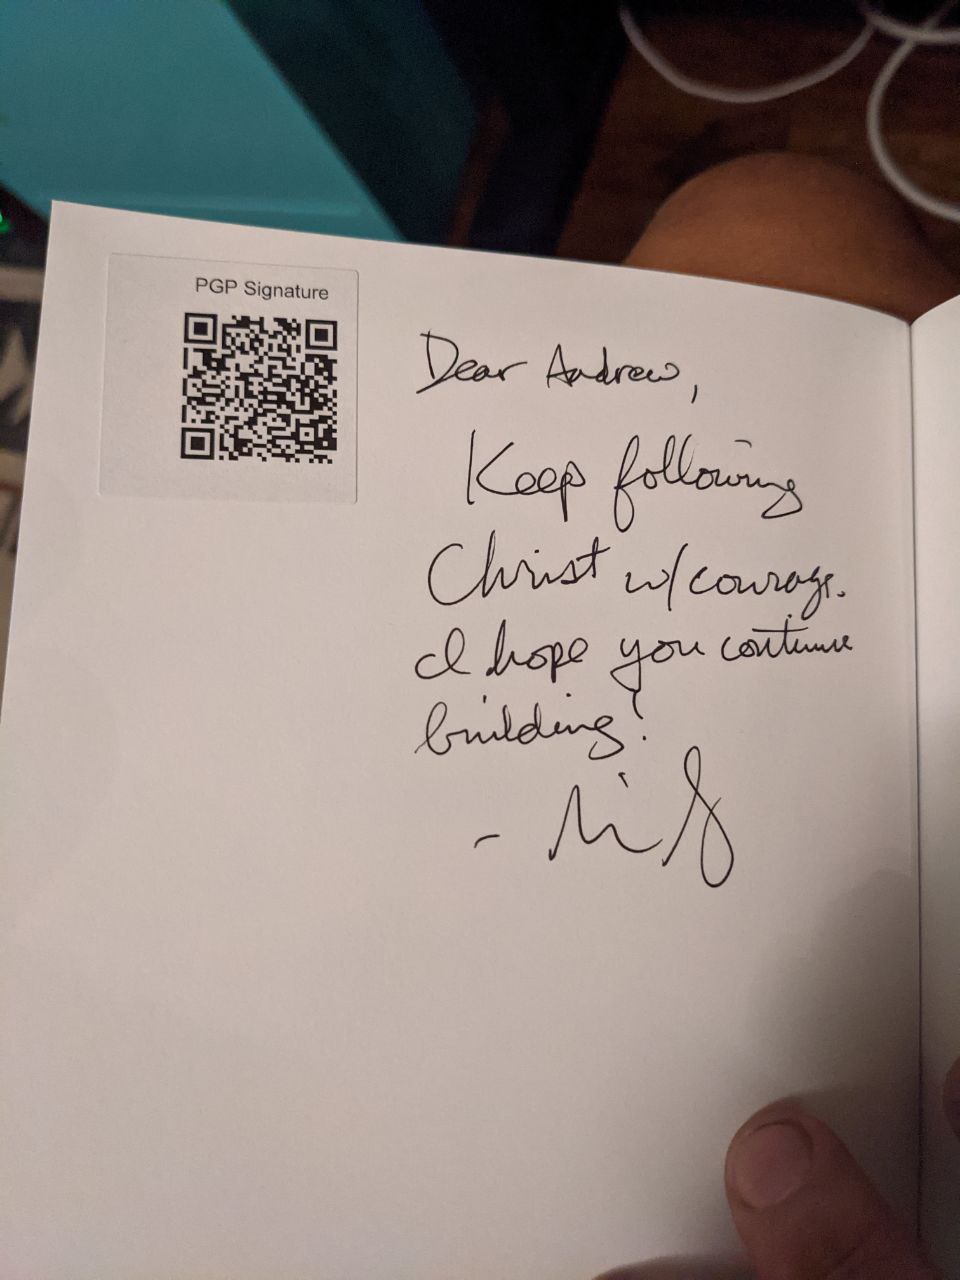 PGP Signature
Dear Andrew,
Keep following
Christ w/courage.
I hope you continue
building!